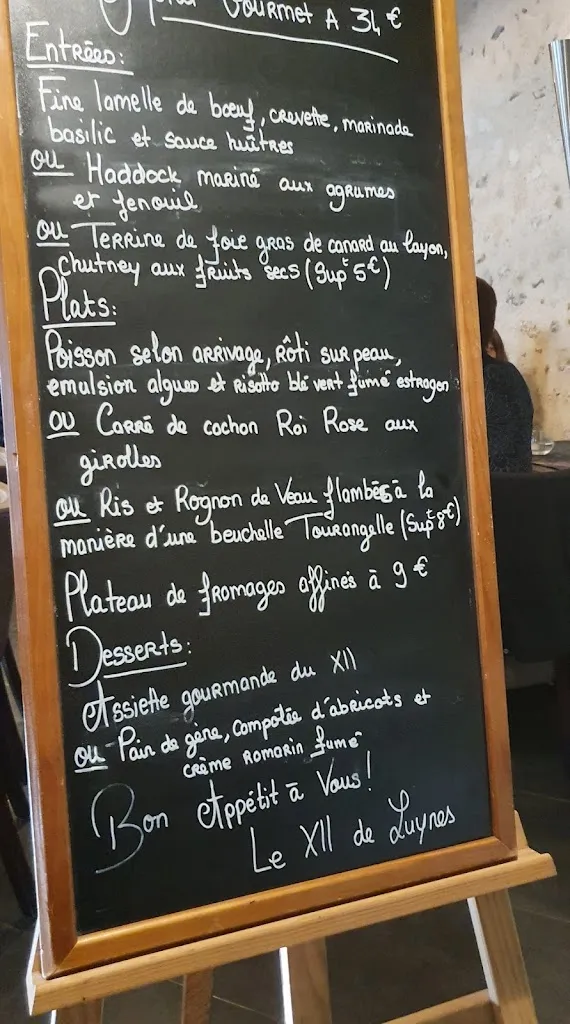 Gourmet A 34 €
Entrées:
Fine lamelle de bœuf, crevette, marinade
basilic et sauce huîtres
ou Haddock mariné aux agrumes
et fenouil
ou Terrine de foie gras de canard au layon,
chutney aux fruits secs (Supt 5€)
Plats:
Poisson selon arrivage, Rôti sur peau,
emulsion algues et Risotto blé vert fumé estragon
ou Carré de cochon Roi Rose aux
girolles
ou Ris et Rognon de Veau flambés à la
manière d'une beuchelle Tourangelle (Supt 8€)
Plateau de fromages affinés à 9 €
Desserts:
Assiette gourmande du XII
ou Pain de gêne, compotée d'abricots et
crème Romarin fumé
Bon Appétit à Vous!
Le XII de Luynes